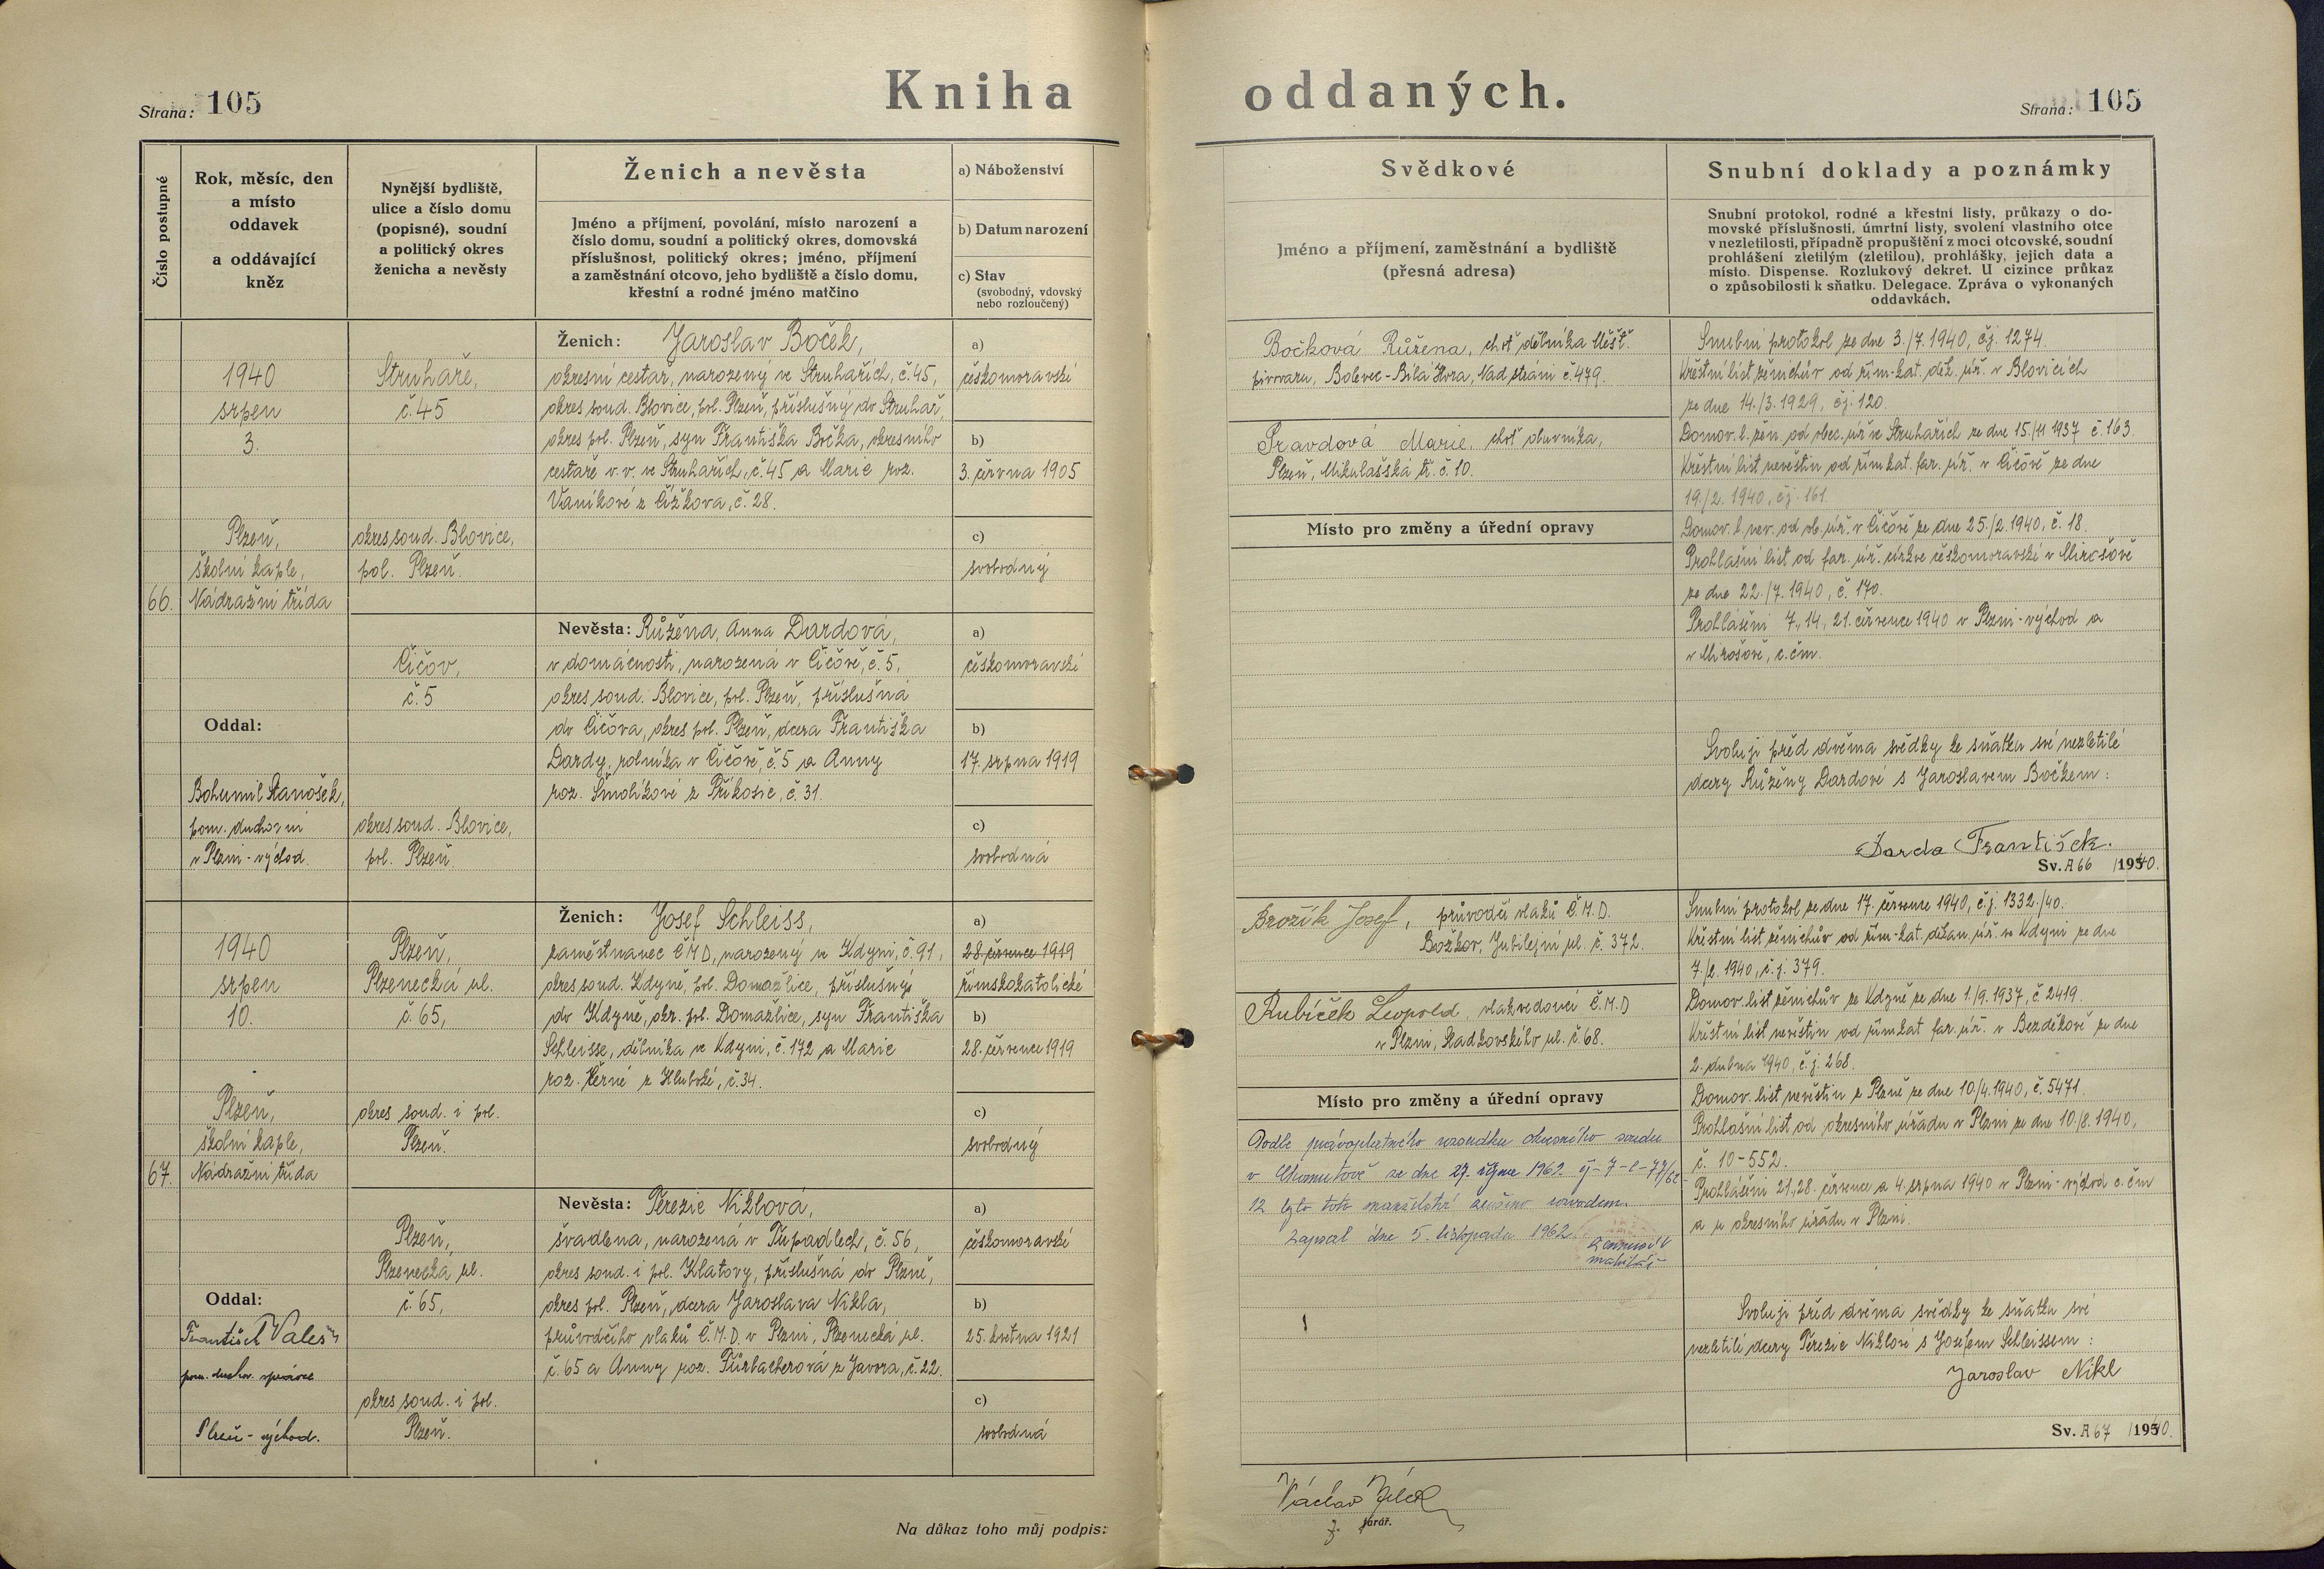 Strana: 105
Kniha oddaných.
Strana: 105
Číslo postupné
Rok, měsíc, den
a místo
oddavek
a oddávající
kněz
Nynější bydliště,
ulice a číslo domu
(popisné), soudní
a politický okres
ženicha a nevěsty
Ženich a nevěsta
Jméno a příjmení, povolání, místo narození a
číslo domu, soudní a politický okres, domovská
příslušnost, politický okres; jméno, příjmení
a zaměstnání otcovo, jeho bydliště a číslo domu,
křestní a rodné jméno matčino
a) Náboženství
b) Datum narození
c) Stav
(svobodný, vdovský
nebo rozloučený)
Svědkové
Jméno a příjmení, zaměstnání a bydliště
(přesná adresa)
Snubní doklady a poznámky
Snubní protokol, rodné a křestní listy, průkazy o do-
movské příslušnosti, úmrtní listy, svolení vlastního otce
v nezletilosti, případně propuštění z moci otcovské, soudní
prohlášení zletilým (zletilou), prohlášky, jejich data a
místo. Dispense. Rozlukový dekret. U cizince průkaz
o způsobilosti k sňatku. Delegace. Zpráva o vykonaných
oddavkách.
66.
1940
srpen
3.
Plzeň,
školní kaple,
Nádražní třída
Oddal:
Bohumil Stanošek,
pom. duchovní
v Plzni-východ.
Struhaře,
č. 45
okres soud. Blovice,
pol. Plzeň.
Čičov,
č. 5
okres soud. Blovice,
pol. Plzeň.
Ženich: Jaroslav Boček,
okresní cestář, narozený ve Struhařích, č. 45,
okres soud. Blovice, pol. Plzeň, příslušný do Struhař,
okres pol. Plzeň, syn Františka Bočka, okresního
cestáře v. v. ve Struhařích, č. 45 a Marie roz.
Vaníkové z Čížkova, č. 28.
Nevěsta: Růžena, Anna Dardová,
v domácnosti, narozená v Čičově, č. 5,
okres soud. Blovice, pol. Plzeň, příslušná
do Čičova, okres pol. Plzeň, dcera Františka
Dardy, rolníka v Čičově, č. 5 a Anny
roz. Smolíkové z Příkosic, č. 31.
a)
českomoravské
b)
3. června 1905
c)
svobodný
a)
českomoravské
b)
17. srpna 1919
c)
svobodná
Bočková Růžena, choť dělníka Měšť.
pivovaru, Bolevec-Bílá Hora, Nad strání č. 479.
Pravdová Marie, choť obuvníka,
Plzeň, Mikulášská tř. č. 10.
Místo pro změny a úřední opravy
Snubní protokol ze dne 3./7. 1940, čj. 1274.
Křestní list ženichův od řím-kat. děk. úř. v Blovicích
ze dne 14./3. 1929, čj. 120.
Domov. l. žen. od obec. úř. ve Struhařích ze dne 15./11 1937 č. 163.
Křestní list nevěstin od řím kat. far. úř. v Čičově ze dne
19./2. 1940, čj. 161.
Domov. l. nev. od ob. úř. v Čičově ze dne 25./2. 1940, č. 18.
Prohlašní list od far. úř. církve českomoravské v Mirošově
ze dne 22./7. 1940, č. 170.
Prohlášeni 7., 14., 21. července 1940 v Plzni-východ a
v Mirošově, c. čm.
Svoluji před dvěma svědky ke sňatku své nezletilé
dcery Růženy Dardové s Jaroslavem Bočkem:
Darda František.
Sv. A 66 /1940.
67.
1940
srpen
10.
Plzeň,
školní kaple,
Nádražní třída
Oddal:
František Valeš
pom. duchov. správce
Plzeň-východ.
Plzeň,
Plzenecká ul.
č. 65,
okres soud. i pol.
Plzeň.
Plzeň,
Plzenecká ul.
č. 65,
okres soud. i pol.
Plzeň.
Ženich: Josef Schleiss,
zaměstnanec ČMD, narozený ve Kdyni, č. 91,
okres soud. Kdyně, pol. Domažlice, příslušný
do Kdyně, okr. pol. Domažlice, syn Františka
Schleisse, dělníka ve Kdyni, č. 172 a Marie
roz. Černé z Hluboké, č. 34.
Nevěsta: Terezie Niklová,
švadlena, narozená v Tupadlech, č. 56,
okres soud. i pol. Klatovy, příslušná do Plzně,
okres pol. Plzeň, dcera Jaroslava Nikla,
průvodčího vlaků Č.M.D. v Plzni, Plzenecká ul.
č. 65 a Anny roz. Fürbacherová z Javora, č. 22.
a)
28. července 1919
římskokatolické
b)
28. července 1919
c)
svobodný
a)
českomoravské
b)
25. května 1921
c)
svobodná
Brožík Josef, průvodčí vlaků Č.M.D.
Božkov, Jubilejní ul. č. 372.
Kubíček Leopold, vlakvedoucí Č.M.D
v Plzni, Radkovského ul. č. 68.
Místo pro změny a úřední opravy
Podle právoplatného rozsudku okresního soudu
v Chomutově ze dne 27. října 1962 čj-7-C-77/62
12 bylo toto manželství zrušeno rozvodem.
Zapsal dne 5. listopadu 1962.
Snubní protokol ze dne 17. července 1940, č. j. 1332./40.
Křestní list ženichův od řím-kat. děkan. úř. ve Kdyni ze dne
7./2. 1940, č. j. 379.
Domov. list ženichův ze Kdyně ze dne 1./9. 1937, č 2419.
Křestní list nevěstin od římkat far. úř. v Bezděkově ze dne
2. dubna 1940, č. j. 268.
Domov. list nevěstin z Plzně ze dne 10/4. 1940, č. 5471.
Prohlašní list od okresního úřadu v Plzni ze dne 10./8. 1940,
č. 10-552.
Prohlášeni 21., 28. července a 4. srpna 1940 v Plzni-východ c. čm
a u okresního úřadu v Plzni.
Svoluji před dvěma svědky ke sňatku své
nezletilé dcery Terezie Niklové s Josefem Schleissem:
Jaroslav Nikl
Sv. A 67 /1940.
Na důkaz toho můj podpis:
Václav
farář.